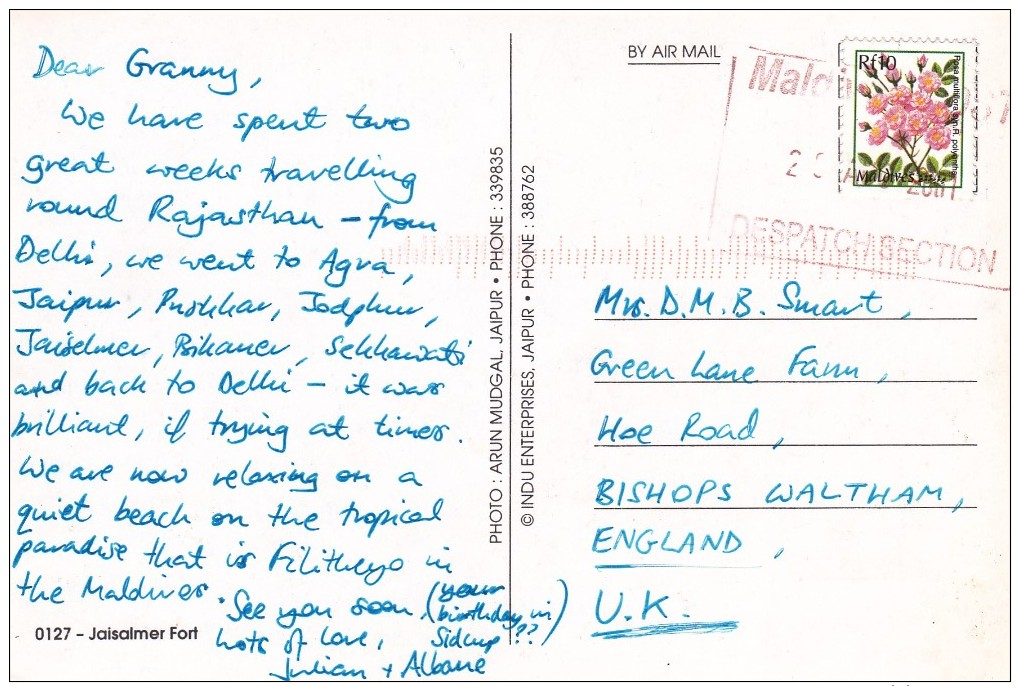 Dear Granny,
We have spent two
great weeks travelling
round Rajasthan – from
Delhi, we went to Agra,
Jaipur, Pushkar, Jodphur,
Jaiselmer, Bikaner, Sekhawati
and back to Delhi – it was
brilliant, if trying at times.
We are now relaxing on a
quiet beach on the tropical
paradise that is Filitheyo in
the Maldives. See you soon, (your
birthday in
Sidcup ??)
Lots of love,
Julian + Albane
0127 – Jaisalmer Fort
PHOTO : ARUN MUDGAL, JAIPUR • PHONE : 339835
© INDU ENTERPRISES, JAIPUR • PHONE : 388762
BY AIR MAIL
Rf10
Rosa multiflora syn. R. polyantha
Maldives
DESPATCH SECTION
Mrs. D.M.B. Smart,
Green Lane Farm,
Hoe Road,
BISHOPS WALTHAM,
ENGLAND,
U.K.